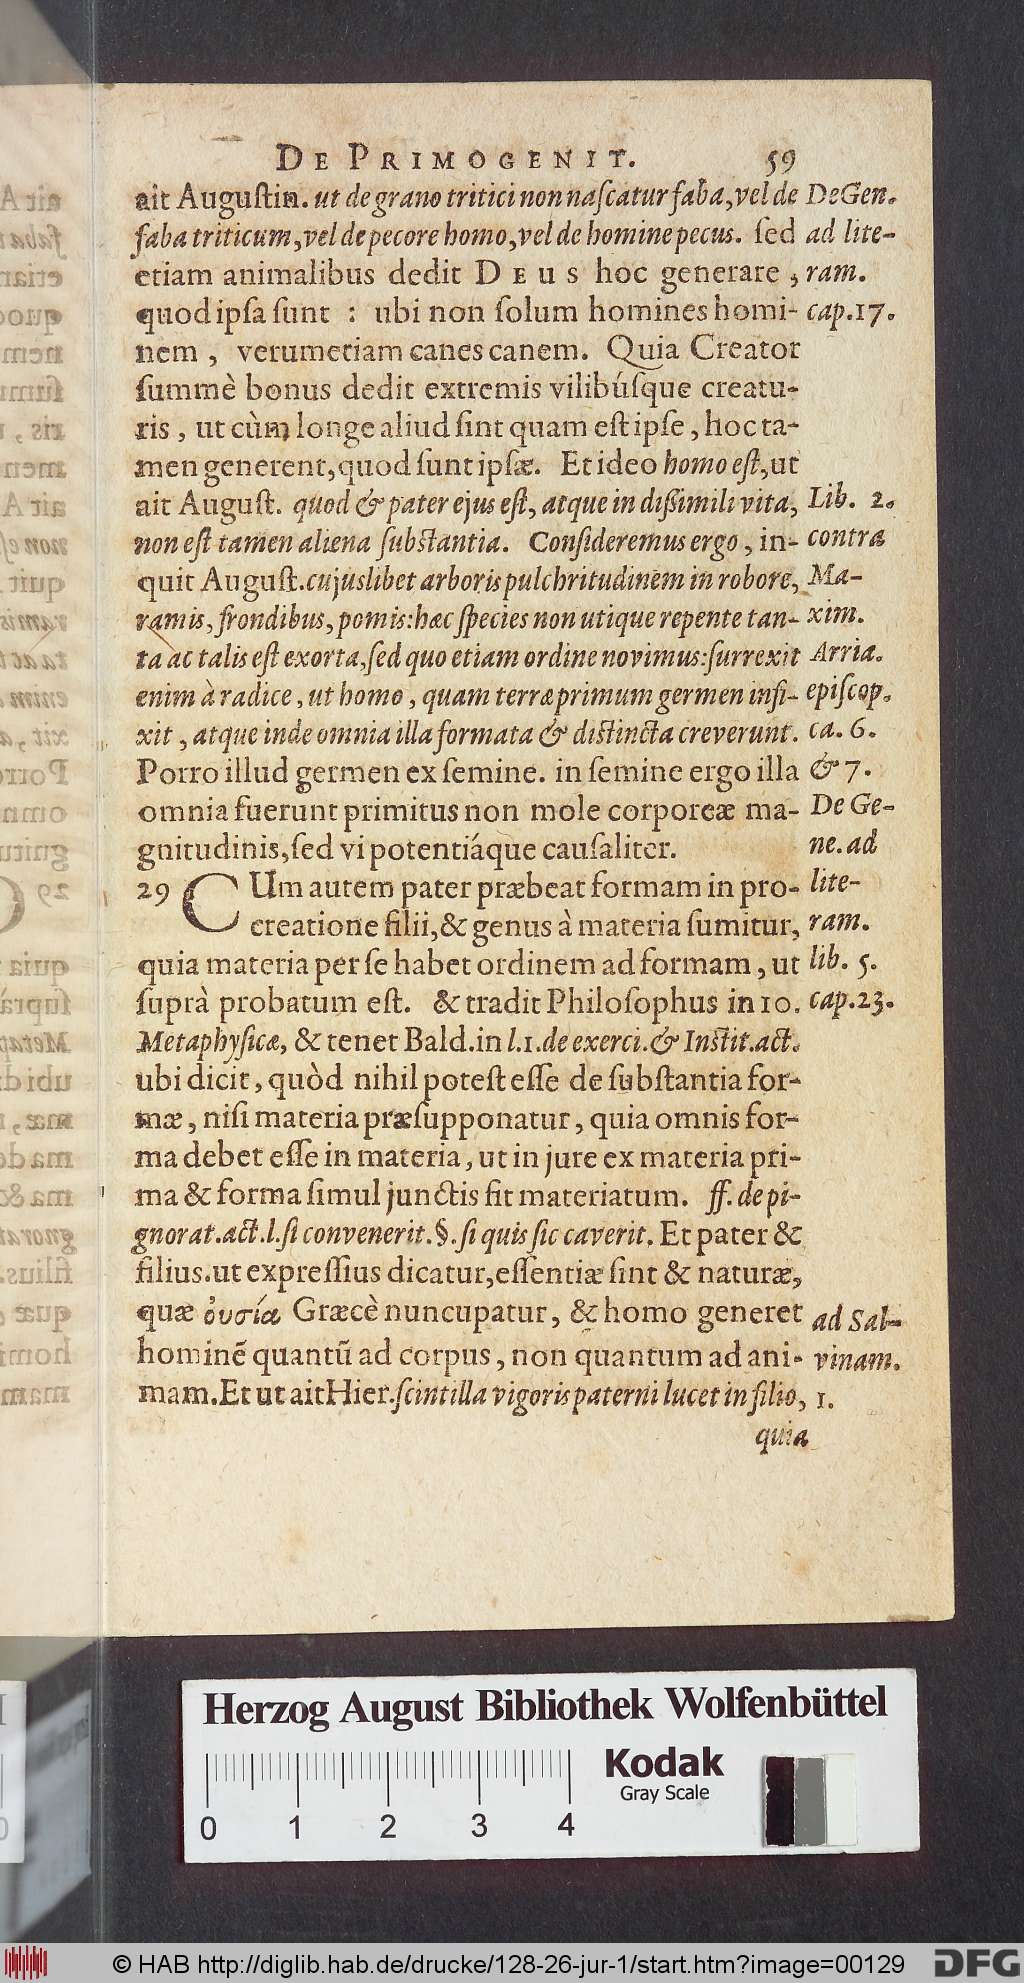 DE PRIMOGENIT. 59
ait Auguſtin. ut de grano tritici non naſcatur faba, vel de
faba triticum, vel de pecore homo, vel de homine pecus. ſed
etiam animalibus dedit DEUS hoc generare,
quod ipſa ſunt : ubi non ſolum homines homi-
nem , verumetiam canes canem. Quia Creator
ſummè bonus dedit extremis vilibúſque creatu-
ris , ut cùm longe aliud ſint quam eſt ipſe , hoc ta-
men generent, quod ſunt ipſæ. Et ideo homo eſt, ut
ait Auguſt. quod & pater ejus eſt, atque in diſſimili vita,
non eſt tamen aliena ſubſtantia. Conſideremus ergo , in-
quit Auguſt. cujuslibet arboris pulchritudinem in robore,
ramis, frondibus, pomis: hæc ſpecies non utique repente tan-
ta ac talis eſt exorta, ſed quo etiam ordine novimus: ſurrexit
enim à radice , ut homo , quam terræ primum germen infi-
xit , atque inde omnia illa formata & diſtincta creverunt.
Porro illud germen ex ſemine. in ſemine ergo illa
omnia fuerunt primitus non mole corporeæ ma-
gnitudinis, ſed vi potentiáque cauſaliter.
29 CUm autem pater præbeat formam in pro-
creatione filii, & genus à materia ſumitur,
quia materia per ſe habet ordinem ad formam , ut
ſuprà probatum eſt. & tradit Philoſophus in 10.
Metaphyſicæ, & tenet Bald. in l.1. de exerci. & Inſtit. act.
ubi dicit , quòd nihil poteſt eſſe de ſubſtantia for-
mæ , niſi materia præſupponatur , quia omnis for-
ma debet eſſe in materia , ut in jure ex materia pri-
ma & forma ſimul junctis fit materiatum. ff. de pi-
gnorat. act. l. ſi convenerit. §. ſi quis ſic caverit. Et pater &
filius. ut expreſſius dicatur, eſſentiæ ſint & naturæ,
quæ ὀυσία Græcè nuncupatur , & homo generet
hominẽ quantũ ad corpus , non quantum ad ani-
mam. Et ut ait Hier. ſcintilla vigoris paterni lucet in filio,
quia
De Gen.
ad lite-
ram.
cap. 17.
Lib. 2.
contra
Ma-
xim.
Arria.
epiſcop.
ca. 6.
& 7.
De Ge-
ne. ad
lite-
ram.
lib. 5.
cap. 23.
ad Sal-
vinam.
1.
Herzog August Bibliothek Wolfenbüttel
Kodak
Gray Scale
0 1 2 3 4
© HAB http://diglib.hab.de/drucke/128-26-jur-1/start.htm?image=00129
DFG